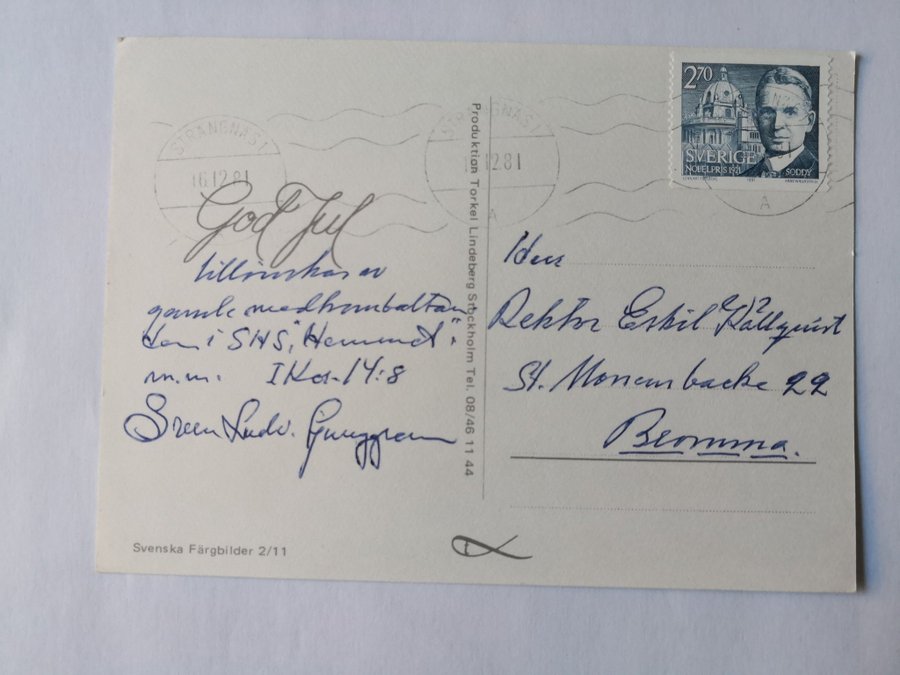 STRÄNGNÄS 1
16.12.81
STRÄNGNÄS 1
12.81
A
A
270
SVERIGE
NOBELPRIS 1921
SODDY
God Jul
tillönskas av
gamle medkombattan
ten i SHS, "Hemmet"
m.m. I Kor. 14:8
Sven Ludv. Ljunggren
Produktion Torkel Lindeberg Stockholm Tel. 08/46 11 44
Herr
Rektor Eskil Källquist
St. 22
Bromma.
Svenska Färgbilder 2/11